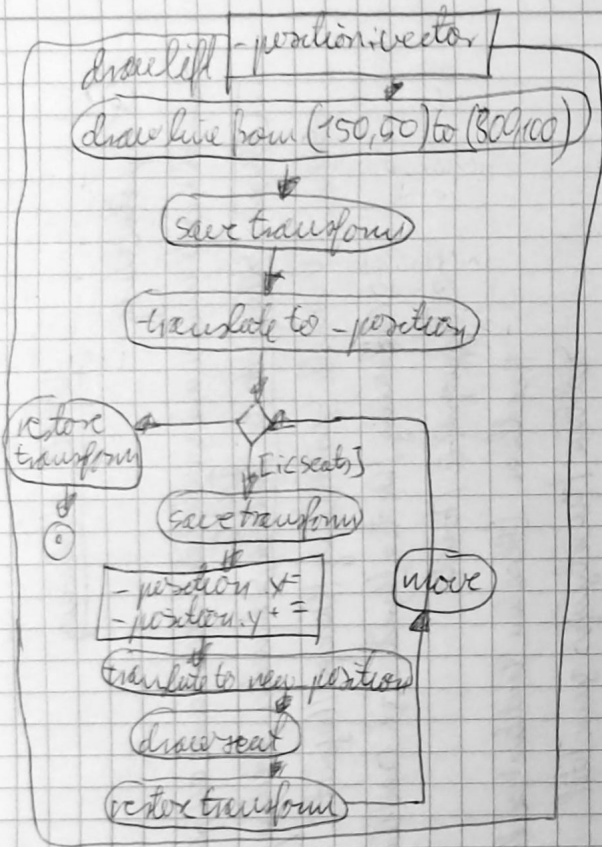 drawlift
-position:vector
draw line from (150,50) to (800,100)
save transform
translate to -position
restore
transform
[i<seats]
save transform
-position.x+=
-position.y+=
move
translate to new position
draw seat
restore transform